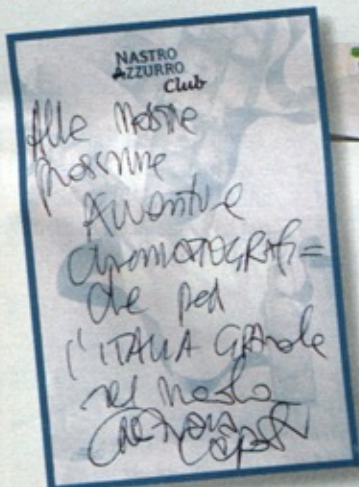 NASTRO
AZZURRO
Club
Alle nostre
prossime
Avventure
cinematografi=
che per
l'ITALIA GRANDE
nel mondo